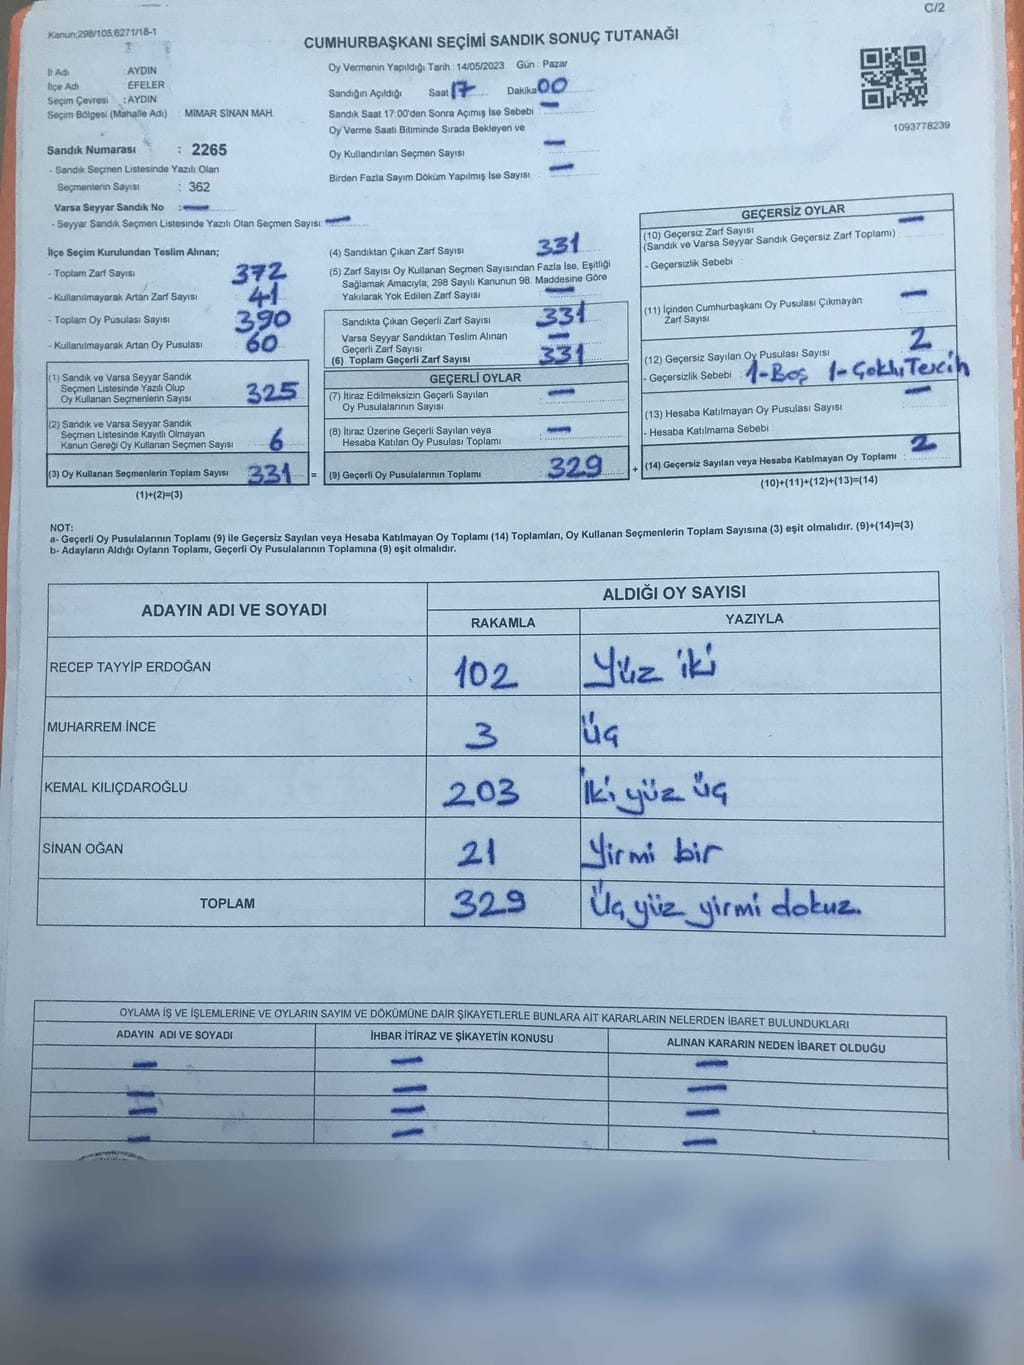 C/2
Kanun;298/105,6271/18-1
CUMHURBAŞKANI SEÇİMİ SANDIK SONUÇ TUTANAĞI
İl Adı : AYDIN
İlçe Adı : EFELER
Seçim Çevresi : AYDIN
Seçim Bölgesi (Mahalle Adı) : MİMAR SİNAN MAH.
Sandık Numarası : 2265
- Sandık Seçmen Listesinde Yazılı Olan
Seçmenlerin Sayısı : 362
Varsa Seyyar Sandık No : -
- Seyyar Sandık Seçmen Listesinde Yazılı Olan Seçmen Sayısı: -
Oy Vermenin Yapıldığı Tarih : 14/05/2023 Gün : Pazar
Sandığın Açıldığı Saat 17 Dakika 00
Sandık Saat 17:00'den Sonra Açımış İse Sebebi : -
Oy Verme Saati Bitiminde Sırada Bekleyen ve
Oy Kullandırılan Seçmen Sayısı : -
Birden Fazla Sayım Döküm Yapılmış İse Sayısı : -
1093778239
İlçe Seçim Kurulundan Teslim Alınan;
- Toplam Zarf Sayısı : 372
- Kullanılmayarak Artan Zarf Sayısı : 41
- Toplam Oy Pusulası Sayısı : 390
- Kullanılmayarak Artan Oy Pusulası : 60
(1) Sandık ve Varsa Seyyar Sandık
Seçmen Listesinde Yazılı Olup
Oy Kullanan Seçmenlerin Sayısı : 325
(2) Sandık ve Varsa Seyyar Sandık
Seçmen Listesinde Kayıtlı Olmayan
Kanun Gereği Oy Kullanan Seçmen Sayısı : 6
(3) Oy Kullanan Seçmenlerin Toplam Sayısı : 331 =
(1)+(2)=(3)
(4) Sandıktan Çıkan Zarf Sayısı : 331
(5) Zarf Sayısı Oy Kullanan Seçmen Sayısından Fazla İse, Eşitliği
Sağlamak Amacıyla, 298 Sayılı Kanunun 98. Maddesine Göre
Yakılarak Yok Edilen Zarf Sayısı : -
Sandıkta Çıkan Geçerli Zarf Sayısı : 331
Varsa Seyyar Sandıktan Teslim Alınan
Geçerli Zarf Sayısı : -
(6) Toplam Geçerli Zarf Sayısı : 331
GEÇERLİ OYLAR
(7) İtiraz Edilmeksizin Geçerli Sayılan
Oy Pusulalarının Sayısı : -
(8) İtiraz Üzerine Geçerli Sayılan veya
Hesaba Katılan Oy Pusulası Toplamı : -
(9) Geçerli Oy Pusulalarının Toplamı : 329 +
GEÇERSİZ OYLAR
(10) Geçersiz Zarf Sayısı
(Sandık ve Varsa Seyyar Sandık Geçersiz Zarf Toplamı) : -
- Geçersizlik Sebebi :
(11) İçinden Cumhurbaşkanı Oy Pusulası Çıkmayan
Zarf Sayısı : -
(12) Geçersiz Sayılan Oy Pusulası Sayısı : 2
- Geçersizlik Sebebi : 1-Boş 1-Çoklu Tercih
(13) Hesaba Katılmayan Oy Pusulası Sayısı : -
- Hesaba Katılmama Sebebi :
(14) Geçersiz Sayılan veya Hesaba Katılmayan Oy Toplamı : 2
(10)+(11)+(12)+(13)=(14)
NOT:
a- Geçerli Oy Pusulalarının Toplamı (9) ile Geçersiz Sayılan veya Hesaba Katılmayan Oy Toplamı (14) Toplamları, Oy Kullanan Seçmenlerin Toplam Sayısına (3) eşit olmalıdır. (9)+(14)=(3)
b- Adayların Aldığı Oyların Toplamı, Geçerli Oy Pusulalarının Toplamına (9) eşit olmalıdır.
ADAYIN ADI VE SOYADI ALDIĞI OY SAYISI
RAKAMLA YAZIYLA
RECEP TAYYİP ERDOĞAN 102 Yüz iki
MUHARREM İNCE 3 Üç
KEMAL KILIÇDAROĞLU 203 İki yüz üç
SİNAN OĞAN 21 Yirmi bir
TOPLAM 329 Üç yüz yirmi dokuz.
OYLAMA İŞ VE İŞLEMLERİNE VE OYLARIN SAYIM VE DÖKÜMÜNE DAİR ŞİKAYETLERLE BUNLARA AİT KARARLARIN NELERDEN İBARET BULUNDUKLARI
ADAYIN ADI VE SOYADI İHBAR İTİRAZ VE ŞİKAYETİN KONUSU ALINAN KARARIN NEDEN İBARET OLDUĞU
- - -
- - -
- - -
- - -